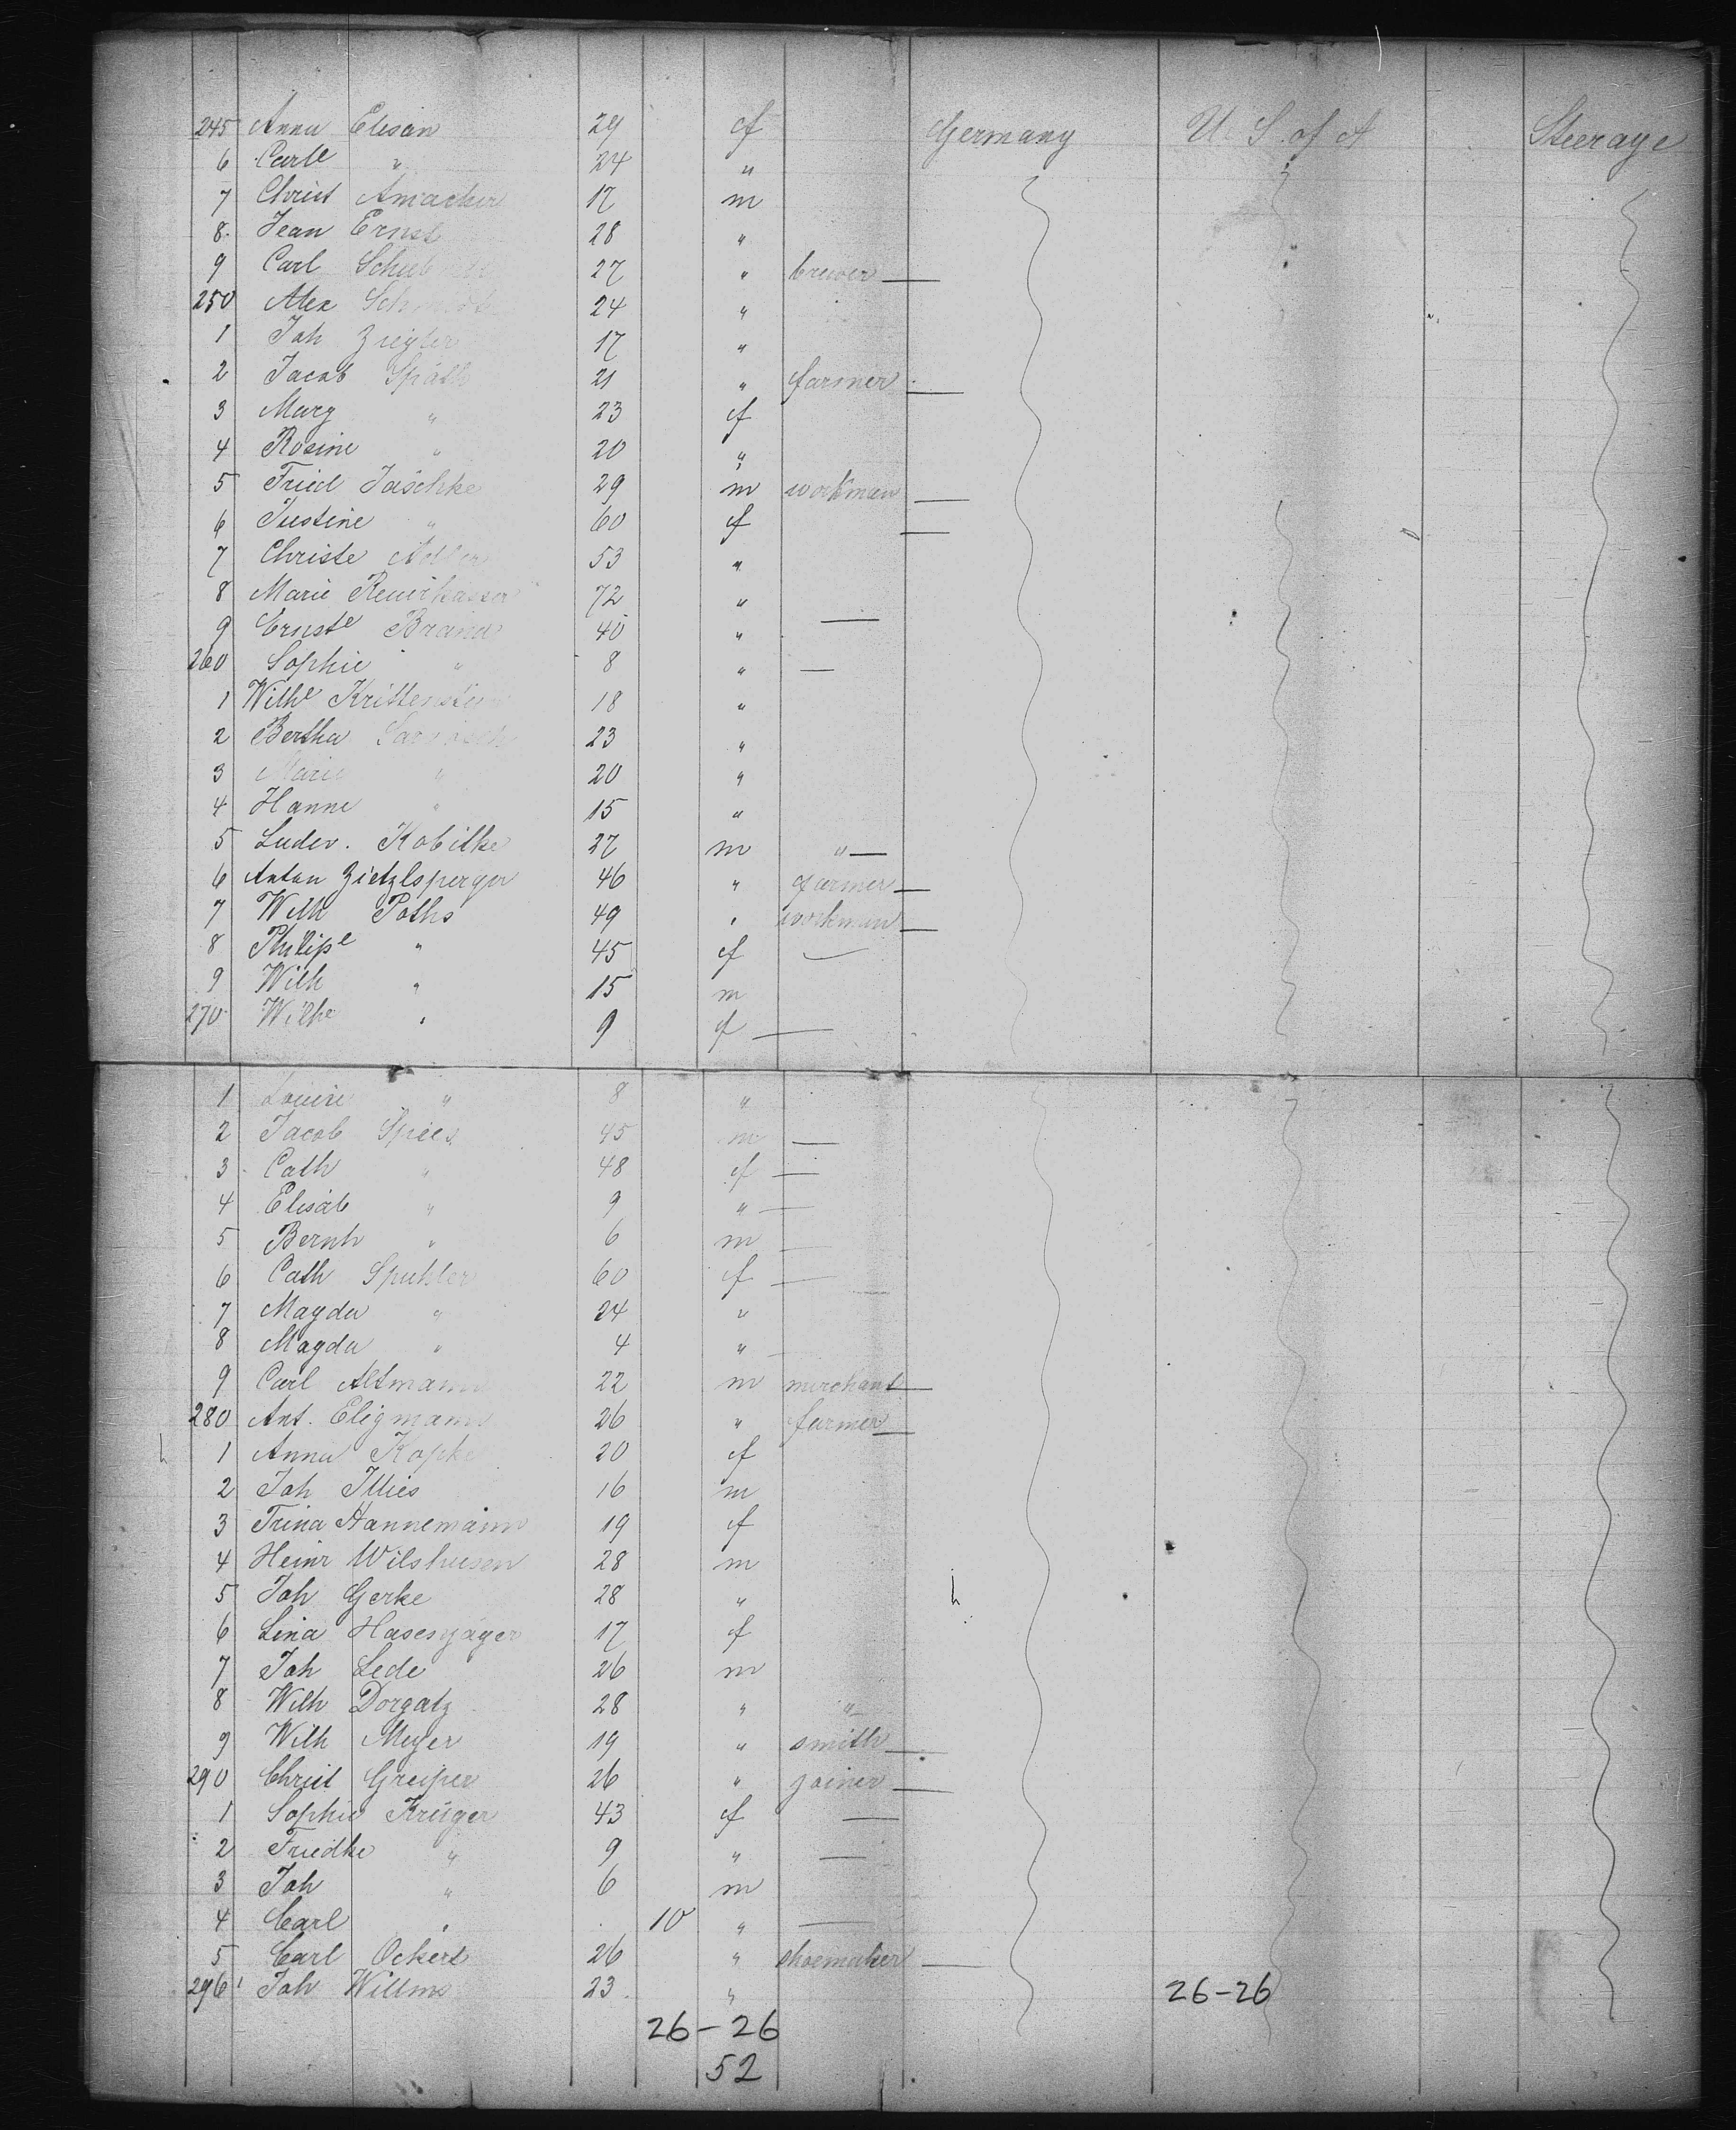 245 Anna Elisan 29 f Germany U. S. of A Steerage
6 Carle " 24 "
7 Christ Amacher 17 m
8 Jean Ernst 28 "
9 Carl 27 " brewer —
250 Alex Schmidt 24 "
1 Joh Ziegler 17 "
2 Jacob Späth 21 " farmer —
3 Mary " 23 f
4 Rosine " 20 "
5 Fried Jaschke 29 m workman —
6 Justine " 60 f —
7 Christe 53 "
8 Marie 72 "
9 Ernste Brand 40 " —
260 Sophie " 8 " —
1 Wilhe 18 "
2 Bertha 23 "
3 Marie " 20 "
4 Hanne " 15 "
5 Ludw. Kobitke 27 m " —
6 Anton Zietzlsperger 46 " farmer —
7 Wilh Poths 49 " workman —
8 Philipe " 45 f —
9 Wilh " 15 m
270 Wilhe " 9 f —
1 Louise " 8 "
2 Jacob Spies 45 m —
3 Cath " 48 f —
4 Elisab " 9 " —
5 Bernh " 6 m —
6 Cath Spuhler 60 f —
7 Magda " 24 "
8 Magda " 4 "
9 Carl Altmann 22 m merchant —
280 Ant. Eligmann 26 " farmer —
1 Anna Kopke 20 f
2 Joh Illies 16 m
3 Trina Hannemann 19 f
4 Heinr Wilshusen 28 m
5 Joh Gerke 28 "
6 Lina Hasenjäger 17 f
7 Joh Lede 26 m
8 Wilh Dorgatz 28 " "
9 Wilh Meyer 19 " smith —
290 Christ Greiper 26 " joiner —
1 Sophie Krüger 43 f —
2 Friedke " 9 " —
3 Joh " 6 m
4 Carl " 10 " —
5 Carl Ockert 26 " shoemaker —
296 Joh Willms 23 " 26-26
26-26
52